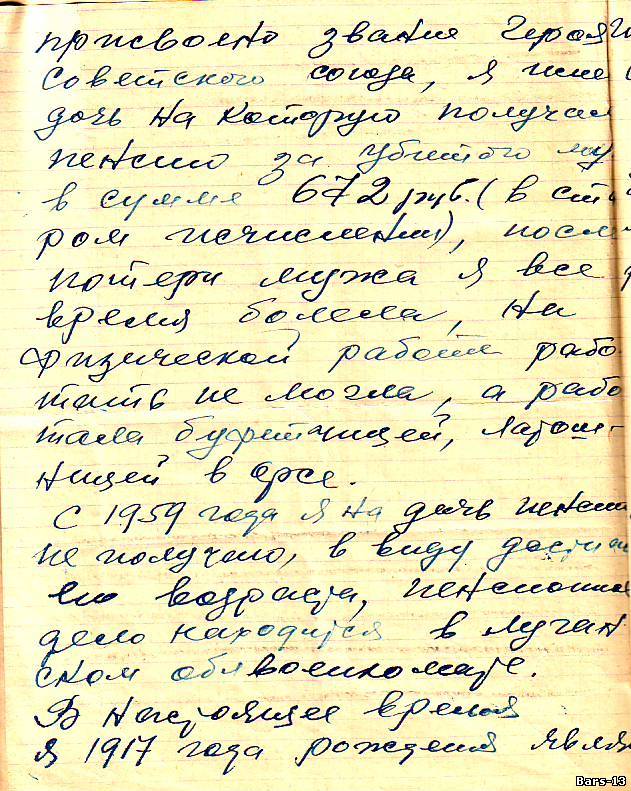 присвоено звание Героя
Советского союза, я име
дочь на которую получал
пенсию за убитого му
в сумме 672 руб. (в ста
ром исчислении), посл
потери мужа я все
время болела, на
физической работе рабо
тать не могла, а рабо
тала буфетчицей, лотош-
ницей в орсе.
С 1959 года я на дочь пенси
не получаю, в виду дости
ею возраста, пенсионн
дело находится в Луган
ском облвоенкомате.
В настоящее время
я 1917 года рождения явля
Bars-13